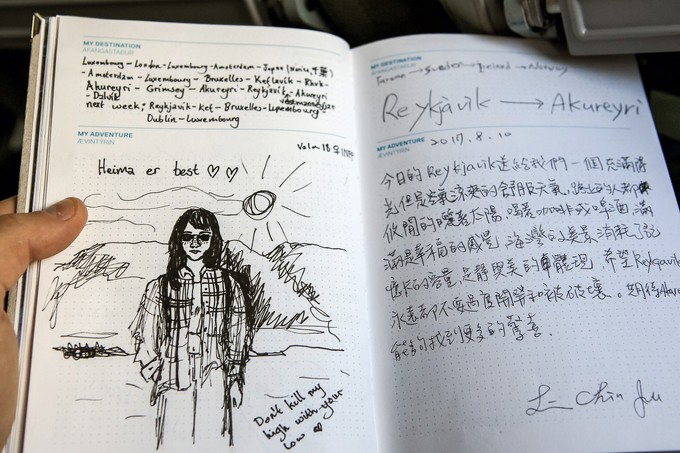 MY DESTINATION
ÁFANGASTAÐUR
Luxembourg - London - Luxembourg - Amsterdam - Japan
- Amsterdam - Luxembourg - Bruxelles - Keflavik -
Akureyri - Grimsey - Akureyri - Reykjavik - Akureyri
- Dalvik
next week; Reykjavik - Kef - Bruxelles - Luxembourg -
Dublin - Luxembourg
MY ADVENTURE
ÆVINTÝRIN
Heima er best ♡ ♡
Don't kill my
high with your
low
MY DESTINATION
ÁFANGASTAÐUR
Taiwan → Sweden → Iceland → Norway
Reykjavik → Akureyri
MY ADVENTURE
ÆVINTÝRIN
2017.8.10
今日的 Reykjavik 送給我們一個充滿陽
光但是空氣涼爽的舒服天氣。路上的人都
悠閒的曬著太陽 喝著咖啡或啤酒 滿
滿是幸福的感覺 海灣的美景
是靜與美的 體現 希望 Reykjavik
永遠都不要過度開發和被破壞。期待
能夠找到更多的驚喜.
Chin